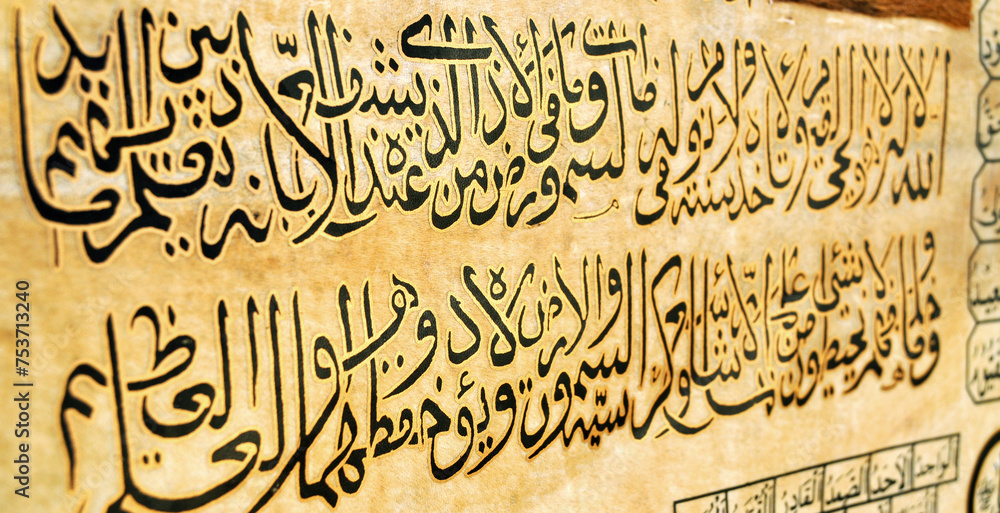 الله لا اله الا هو الحى القيوم لا تاخذه سنة ولا نوم له ما فى السموات وما فى الارض من ذا الذى يشفع عنده الا باذنه يعلم ما بين ايديهم
وما خلفهم ولا يحيطون بشئ من علمه الا بما شاء وسع كرسيه السموات والارض ولا يؤده حفظهما وهو العلى العظيم
الْوَاحِدُ الْأَحَدُ الصَّمَدُ الْقَادِرُ
Adobe Stock | #753713240